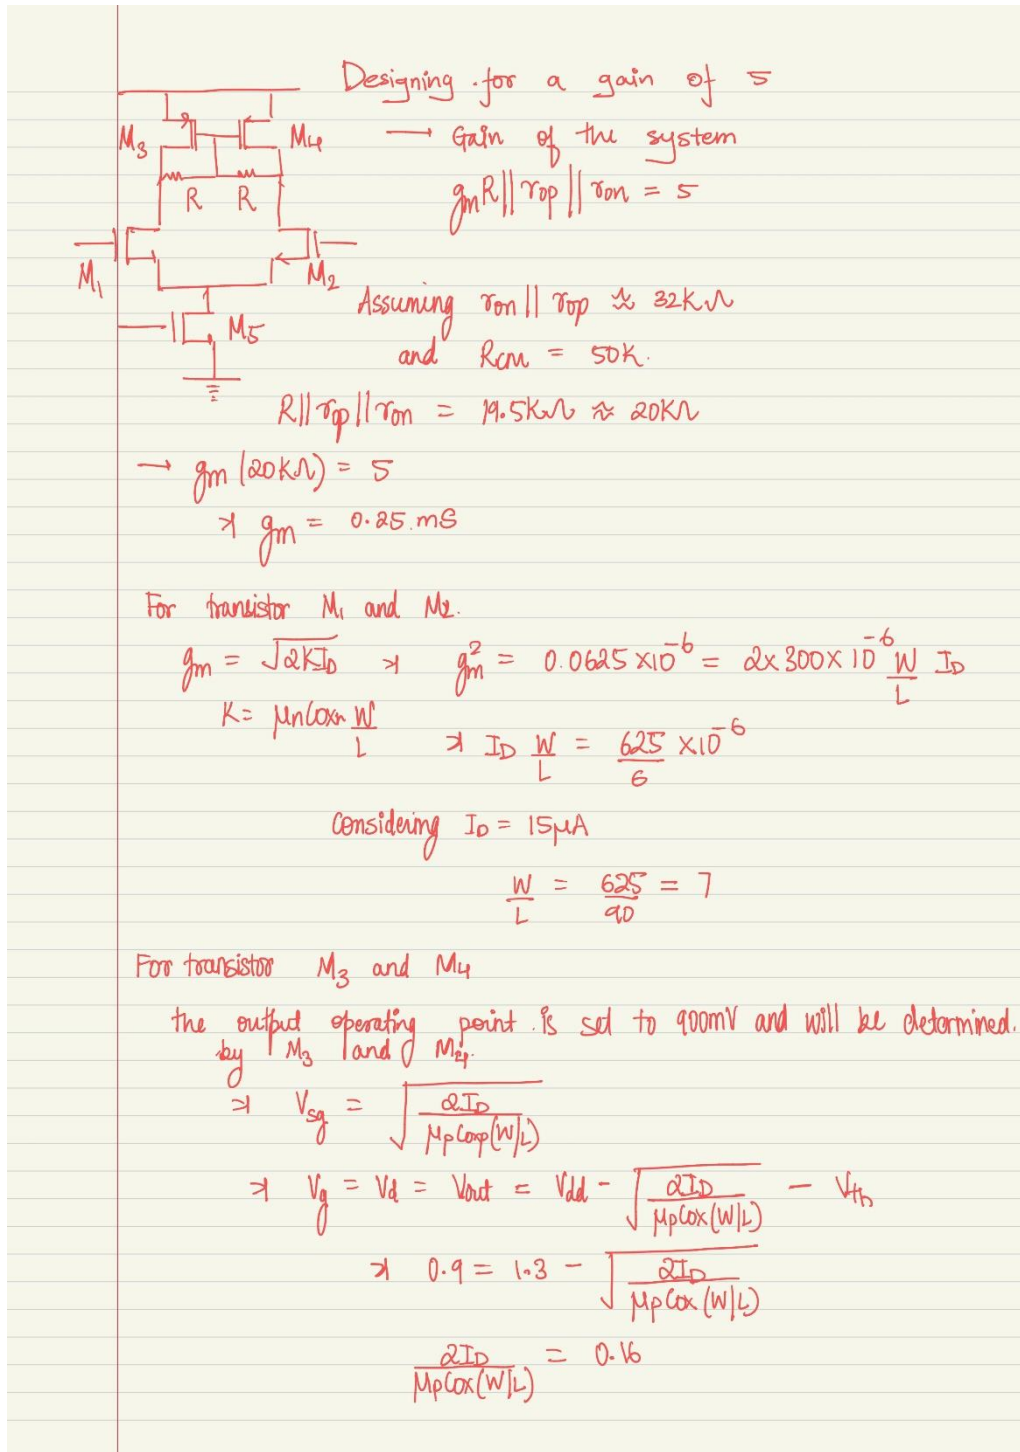 Designing for a gain of 5
M3 M4
→ Gain of the system
R R
gm R || rop || ron = 5
M1 M2
Assuming ron || rop ≈ 32KΩ
M5
and RCM = 50K.
R || rop || ron = 19.5KΩ ≈ 20KΩ
→ gm (20KΩ) = 5
⇒ gm = 0.25 mS
For transistor M1 and M2.
gm = √(2KID) ⇒ gm² = 0.0625 × 10⁻⁶ = 2 × 300 × 10⁻⁶ W/L ID
K = μnCoxn W/L
⇒ ID W/L = 625/6 × 10⁻⁶
Considering ID = 15μA
W/L = 625/90 = 7
For transistor M3 and M4
the output operating point is set to 900mV and will be determined.
by M3 and M4.
⇒ Vsg = √(2ID / μpCoxp(W/L))
⇒ Vg = Vd = Vout = Vdd - √(2ID / μpCox(W/L)) - Vth
⇒ 0.9 = 1.3 - √(2ID / μpCox(W/L))
2ID / μpCox(W/L) = 0.16